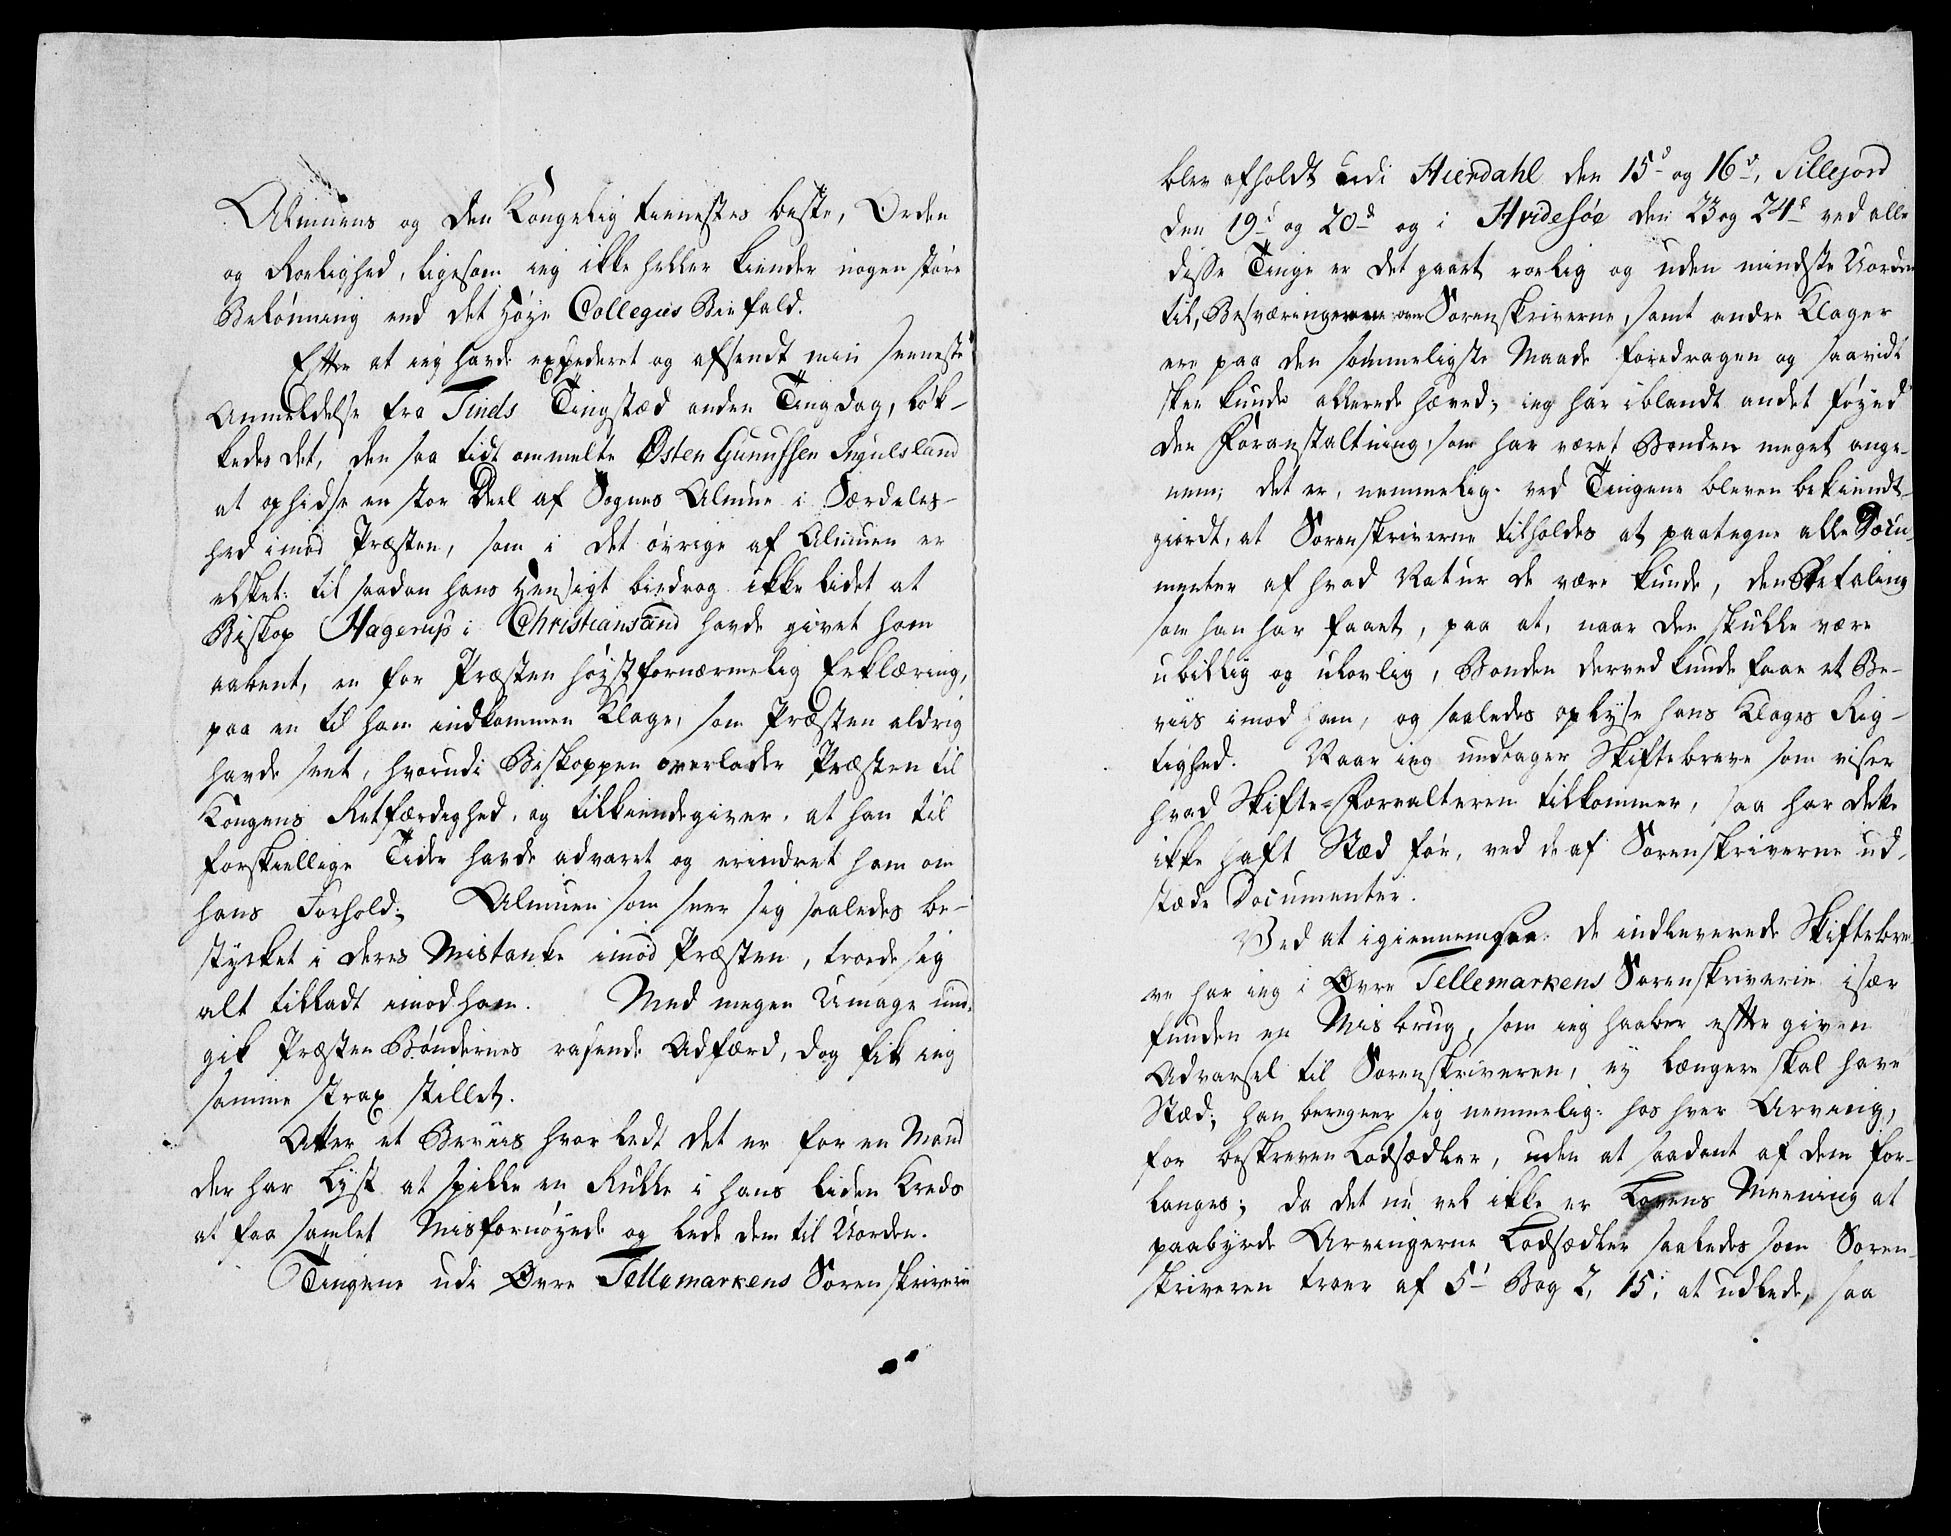 Almuens og den Kongelig tienestes beste, Orden
og Roelighed, ligesom ieg ikke heller kiender nogen støre
Belønning end det Høye Collegies Biefald.
Efter at ieg havde expederet og afsendt min seeneste
Anmeldelse fra Tinds Tingstæd anden Tingdag, løk-
kedes det, den saa tidt ommelte Østen Gunufsen Ingulsland
at ophidse en stor Deel af Sognes Almue i Særdeles-
hed imod Præsten, som i det øvrige af Almuen er
elsket: til saadan hans Hensigt bidrog ikke lidet at
Biskop Hagerup i Christiansand havde givet ham
aabent, en for Præsten høystfornærmelig Erklæring,
paa en til ham indkommen Klage, som Præsten aldrig
havde seet, hvorudi Biskoppen overlader Præsten til
Kongens Retfærdighed, og tilkiendegiver, at han til
forskiellige Tider havde advaret og erindret ham om
hans Forhold; Almuen som seer sig saaledes be-
styrket i deres Mistanke imod Præsten, troede sig
alt tilladt imod ham. Med megen Umage und-
gik Præsten Bøndernes rasende Adfærd, dog fik ieg
samme strax stillet.
Atter et Beviis hvor ledt det er for en Mand
der har Lyst at spille en Rulle i hans liden Kreds
at faa samlet Misfornøyede og lede dem til Uorden.
Tingene udi Øvre Tellemarkens Sorenskriverie
blev afholdt udi Hierdahl den 15d og 16d, Sillejord
den 19d og 20d og i Hvidesøe den 23 og 24d ved alle
disse Tinge er det gaaet roelig og uden mindste Uorden
til, Besværingerne over Sorenskriverne, samt andre Klager
ere paa den sømmeligste Maade foredragen og saavidt
skee kunde allerede hæved; ieg har iblandt andet føyed
den Foranstaltning, som har været Bonden meget ange-
nem; det er, nemmelig: ved Tingene bleven bekiendt-
giordt, at Sorenskriverne tilholdes at paategne alle Docu-
menter af hvad Natur de være kunde, den Betaling
som han har faaet, paa at, naar den skulle være
ubillig og ulovlig, Bonden derved kunde faae et Be-
viis imod ham, og saaledes oplyse hans Klages Rig-
tighed. Naar ieg undtager Skiftebreve som viser
hvad Skifte-Forvalteren tilkommer, saa har dette
ikke haft Stæd før, ved de af Sorenskriverne ud-
stæde Documenter.
Ved at igiennemgaa de indleverede Skiftebre-
ve har ieg i Øvre Tellemarkens Sorenskriverie især
funden en Misbrug, som ieg haaber efter given
Advarsel til Sorenskriveren, ey længere skal have
Stæd; han beregner sig nemmelig: hos hver Arving,
for beskreven Lodsædler, uden at saadant af dem for-
langes; da det nu vel ikke er Lovens Meening at
paabyrde Arvingerne Lodsædler saaledes som Soren-
skriveren troer af 5t Bog 2, 15; at udlede, saa